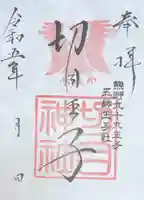 奉拝
熊野九十九王子
五躰王子社
切目王子
切目神社
令和五年
月
日